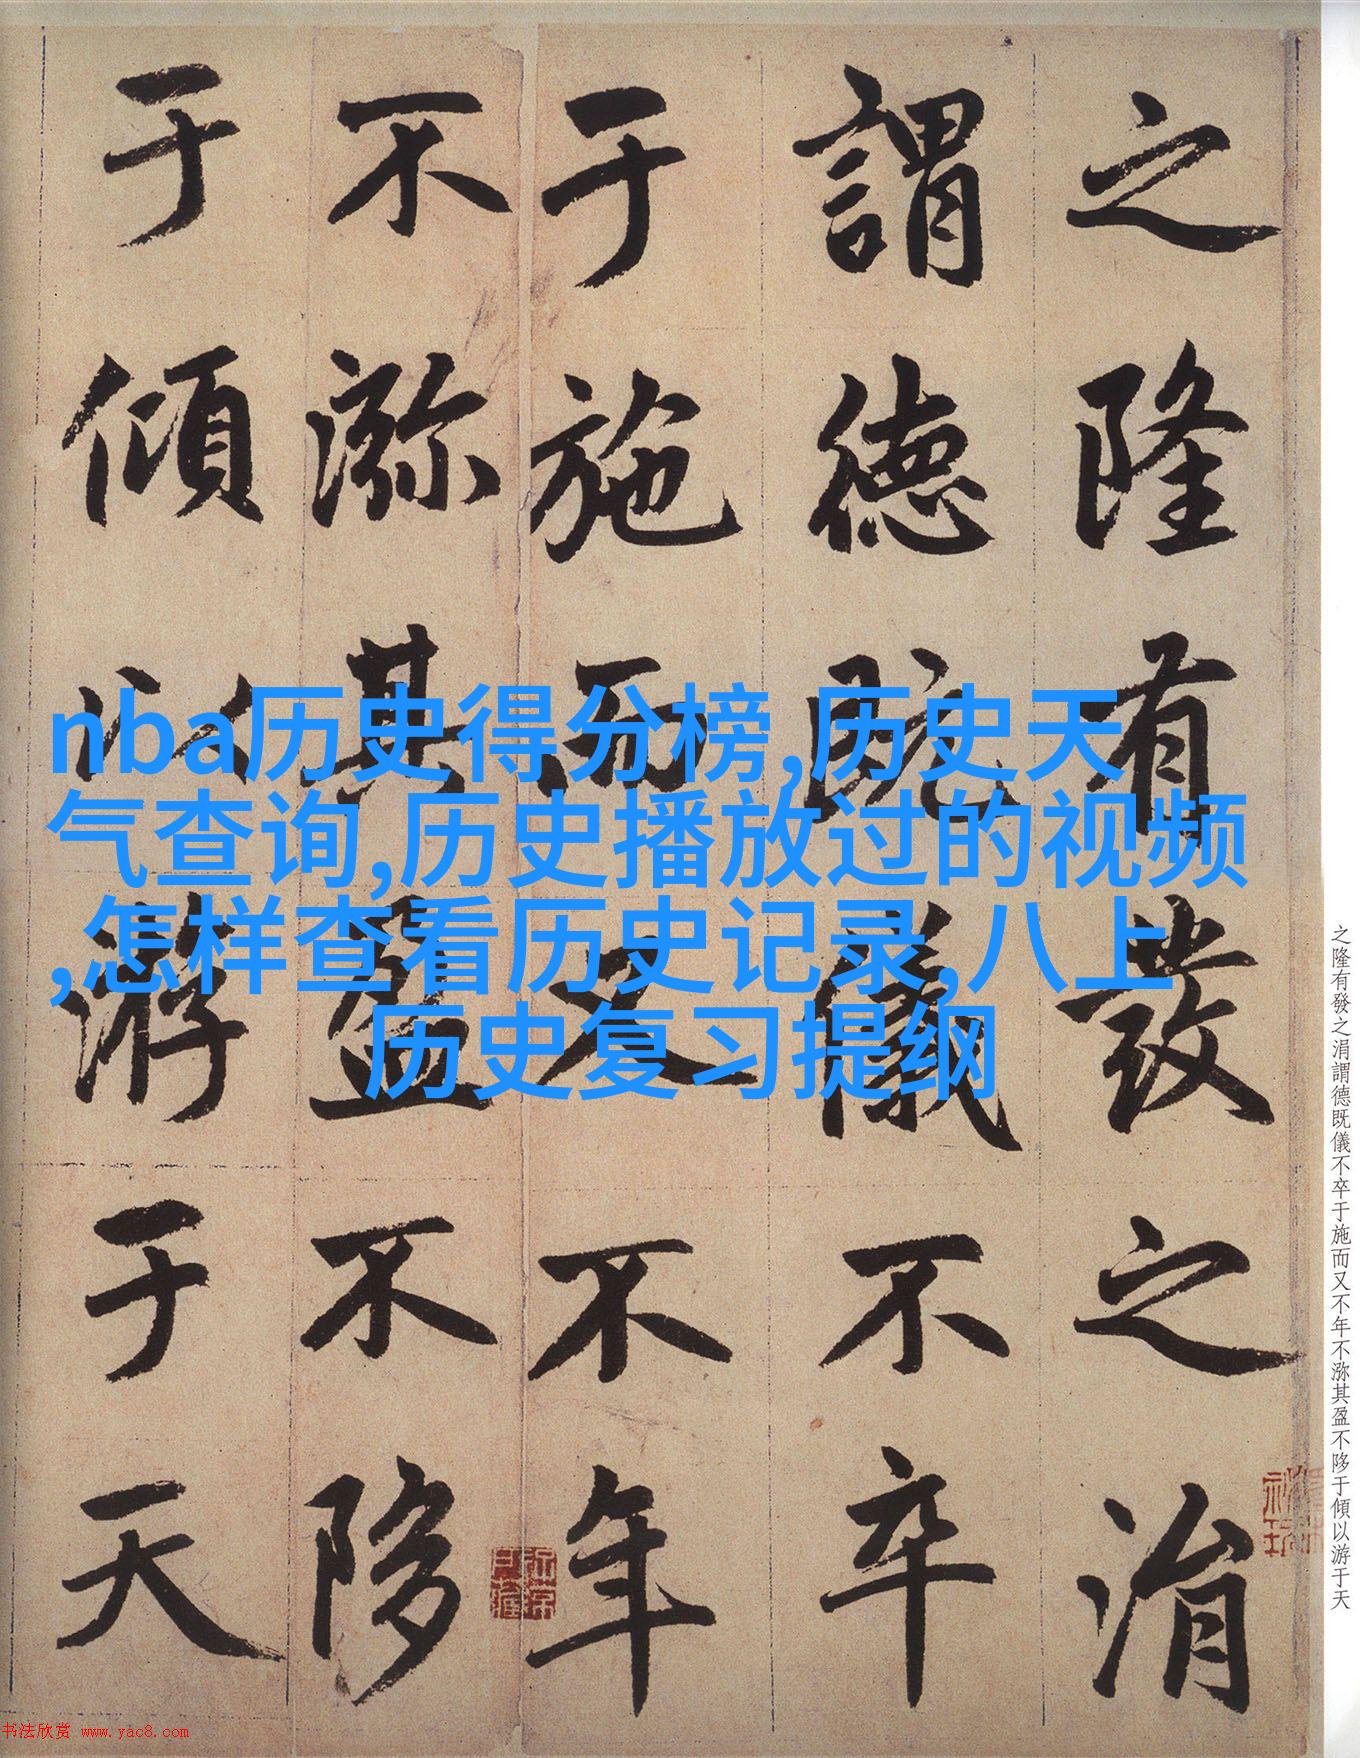 之隆有發之涓
謂德既儀不卒
于施而又不年
不㳽其盈不陊
于傾以游于天
nba历史得分榜,历史天
气查询,历史播放过的视频
,怎样查看历史记录,八上
历史复习提纲
之隆有發之涓謂德既儀不卒于施而又不年不㳽其盈不陊于傾以游于天
书法欣赏 www.yac8.com